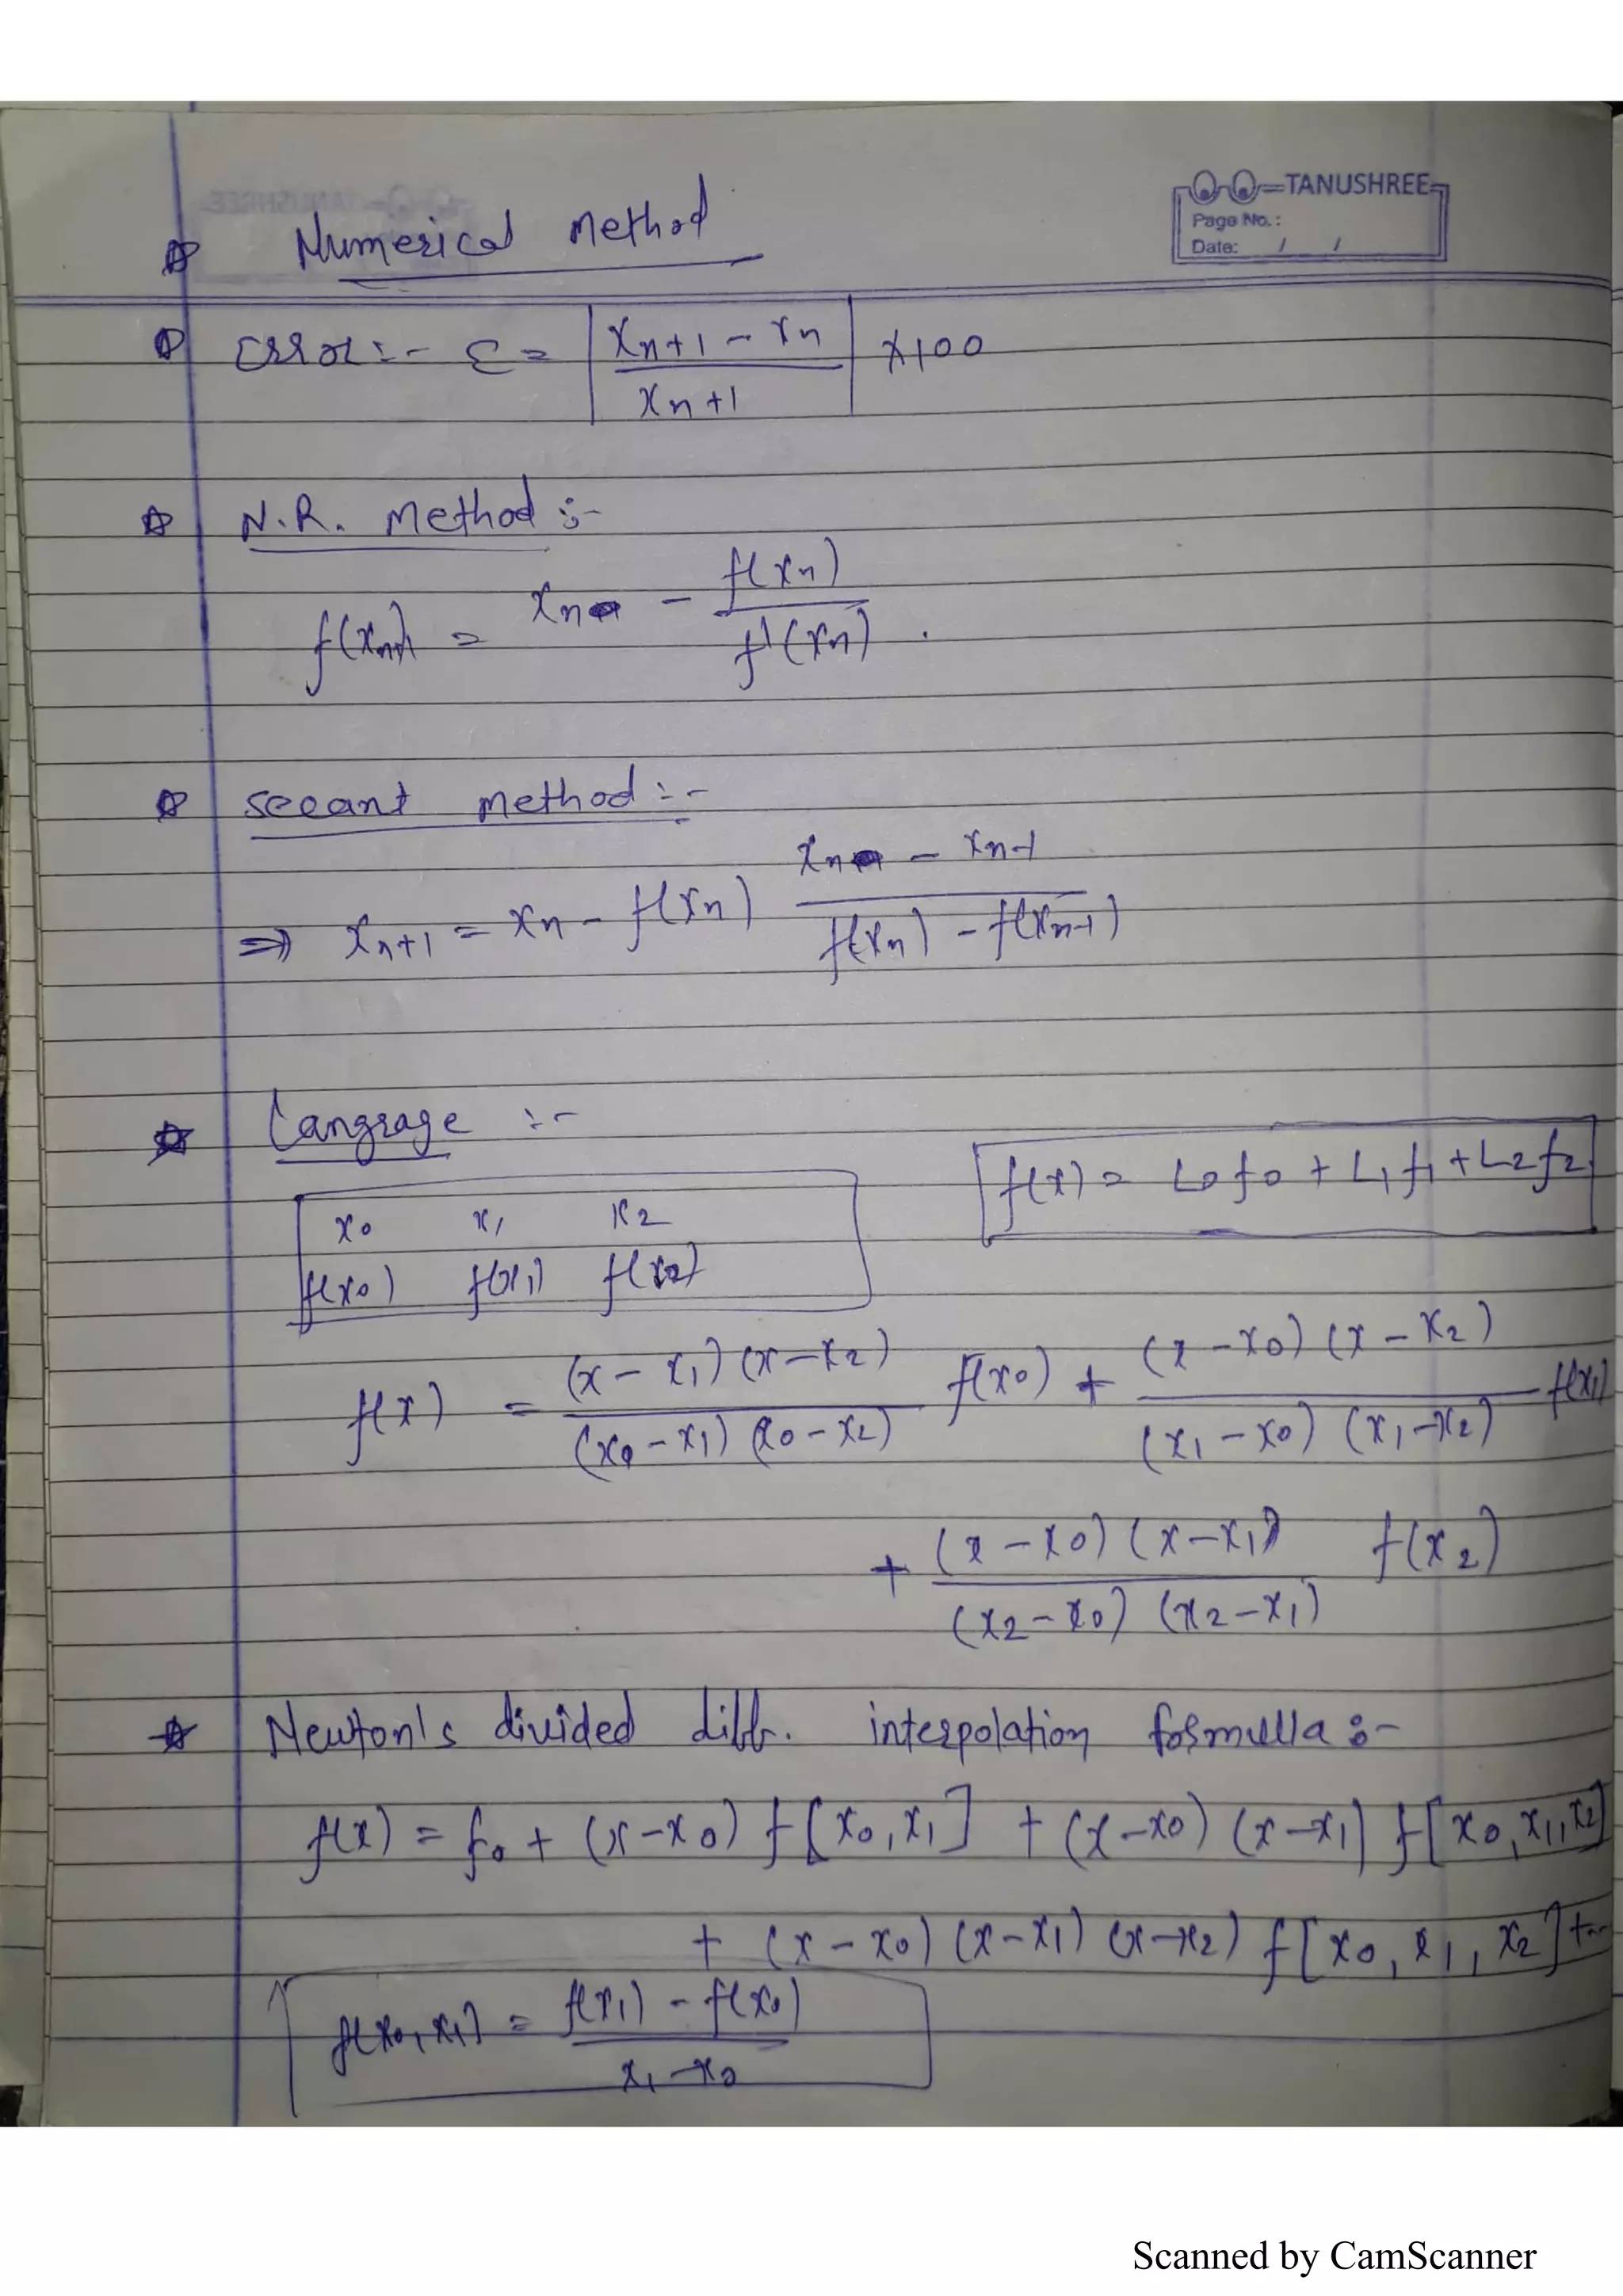 TANUSHREE
Page No.:
Date: / /
Numerical Method
Error:- ε = | (xn+1 - xn) / xn+1 | ×100
N.R. Method :-
f(xn+1) = xn - f(xn) / f'(xn) .
secant method :-
⇒ xn+1 = xn - f(xn) (xn - xn-1) / (f(xn) - f(xn-1))
Langrage :-
f(x) = L0f0 + L1f1 + L2f2
x0 x1 x2
f(x0) f(x1) f(x2)
f(x) = (x - x1) (x - x2) / (x0 - x1) (x0 - x2) f(x0) + (x - x0) (x - x2) / (x1 - x0) (x1 - x2) f(x1)
+ (x - x0) (x - x1) / (x2 - x0) (x2 - x1) f(x2)
Newton's divided diff. interpolation formulla :-
f(x) = f0 + (x - x0) f[x0, x1] + (x - x0) (x - x1) f[x0, x1, x2]
+ (x - x0) (x - x1) (x - x2) f[x0, x1, x2] + --
f[x0, x1] = f(x1) - f(x0) / x1 - x0
Scanned by CamScanner